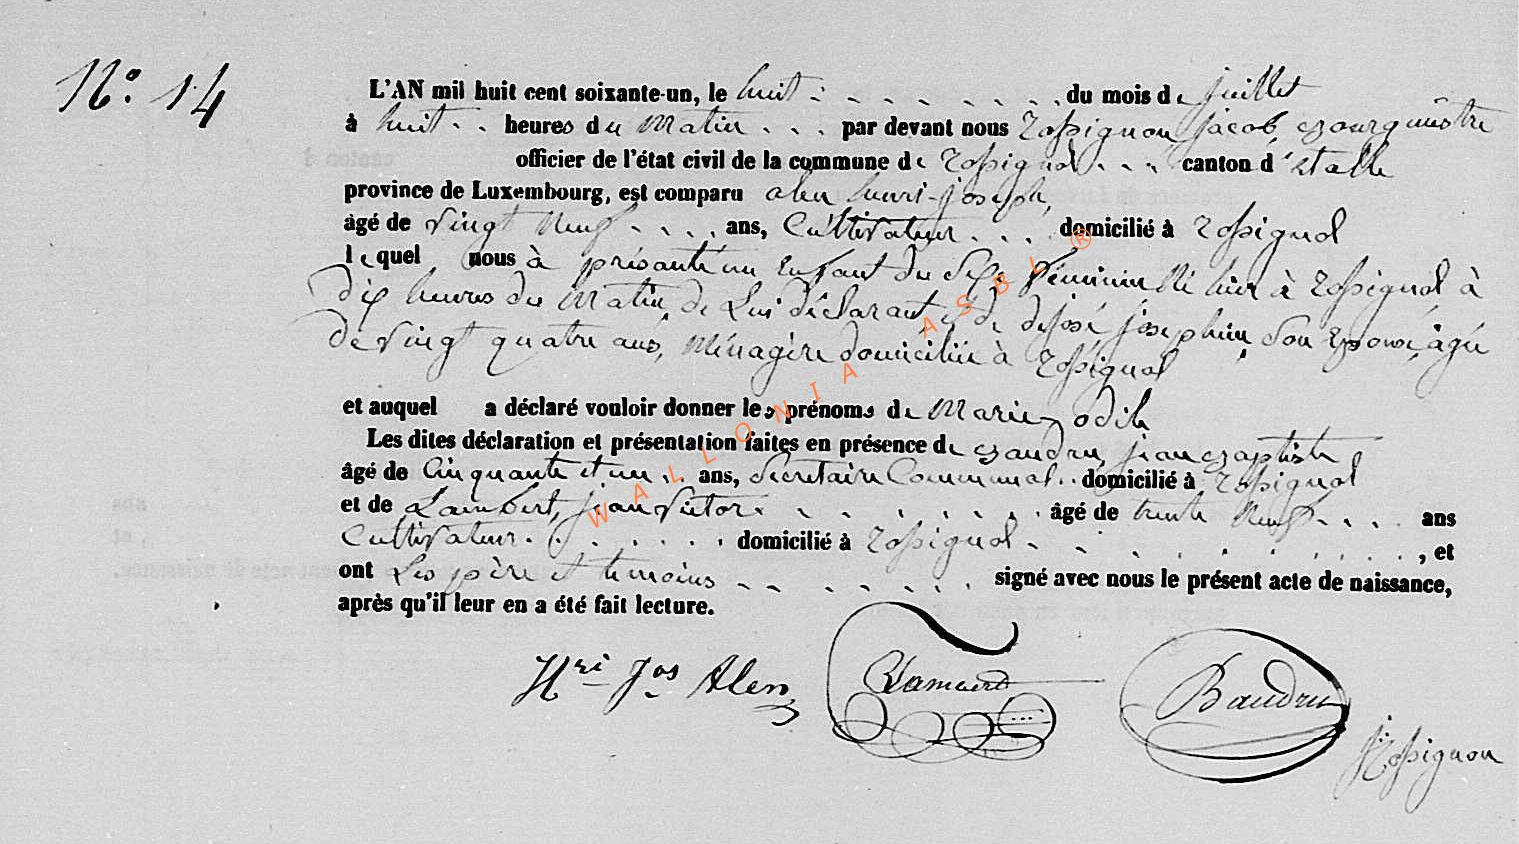 N.° 14
L'AN mil huit cent soixante-un, le huit du mois de juillet
à huit heures du Matin par devant nous Rossignon, jacob, Bourgmestre
officier de l'état civil de la commune de Rossignol canton d'étalle
province de Luxembourg, est comparu alen henri-joseph,
âgé de vingt neuf ans, Cultivateur domicilié à Rossignol
lequel nous à présenté un Enfant du Sexe féminin Né hier à Rossignol à
dix heures du Matin, de Lui déclarant et de dessosé josephine, Son Epouse, agée
de vingt quatre ans, Ménagère domiciliée à Rossignol
et auquel a déclaré vouloir donner les prénoms de Marie, odile
Les dites déclaration et présentation faites en présence de Baudru, jean Baptiste
âgé de Cinquante et un ans, Secretaire Communal domicilié à Rossignol
et de Lambert, jean Victor âgé de trente Neuf ans
Cultivateur domicilié à Rossignol, et
ont Les père et temoins signé avec nous le présent acte de naissance,
après qu'il leur en a été fait lecture.
Hri Jos Alen Lambert Baudru
J: Rossignon
WALLONIA ASBL ®